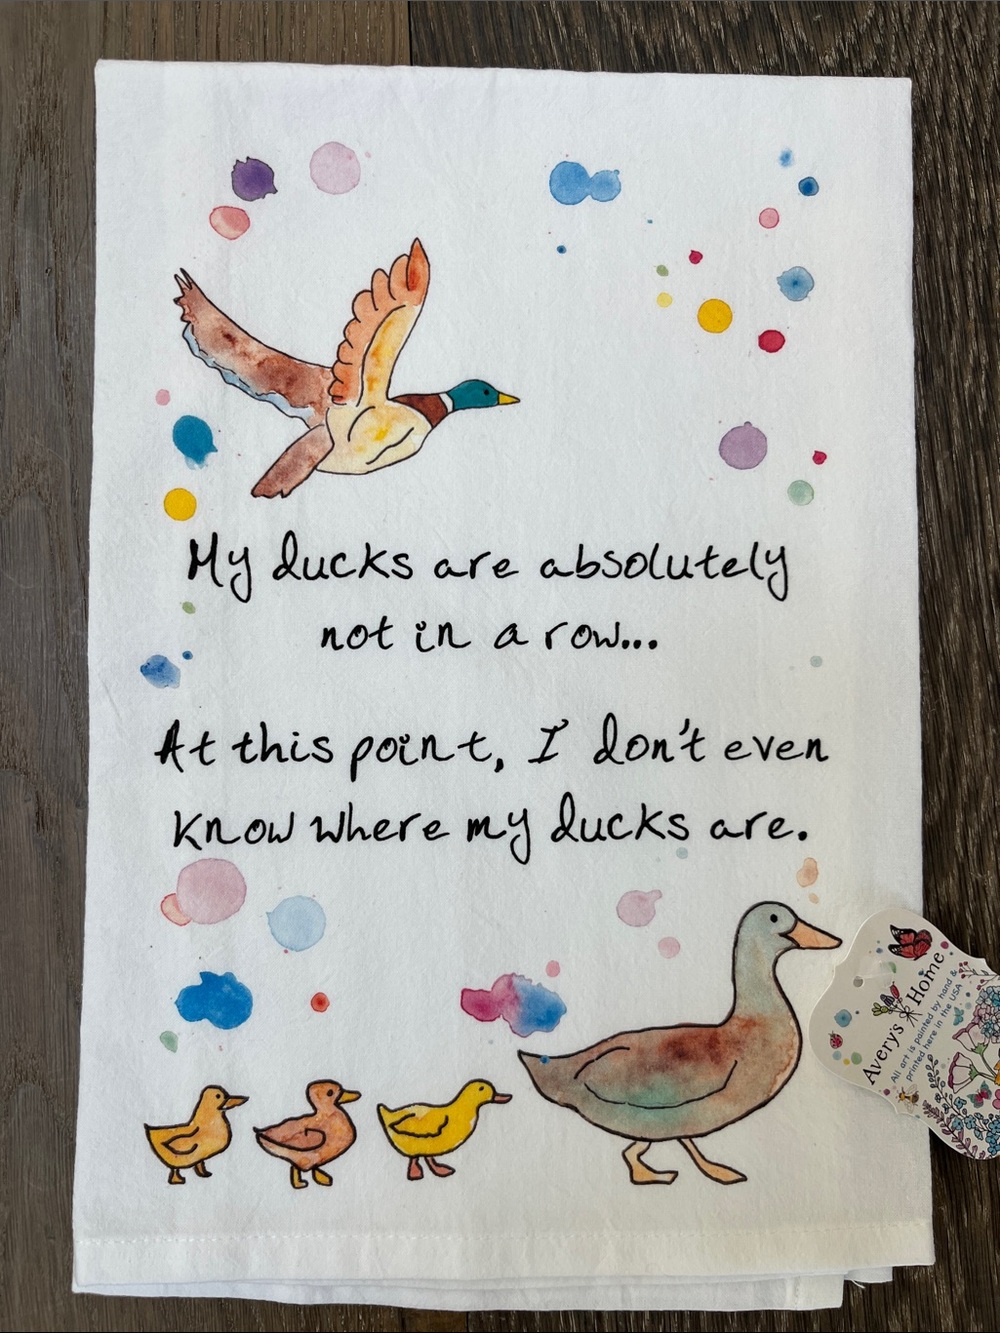 My ducks are absolutely
not in a row...
At this point, I don't even
know where my ducks are.
Avery's Home
All art is painted by hand &
printed here in the USA